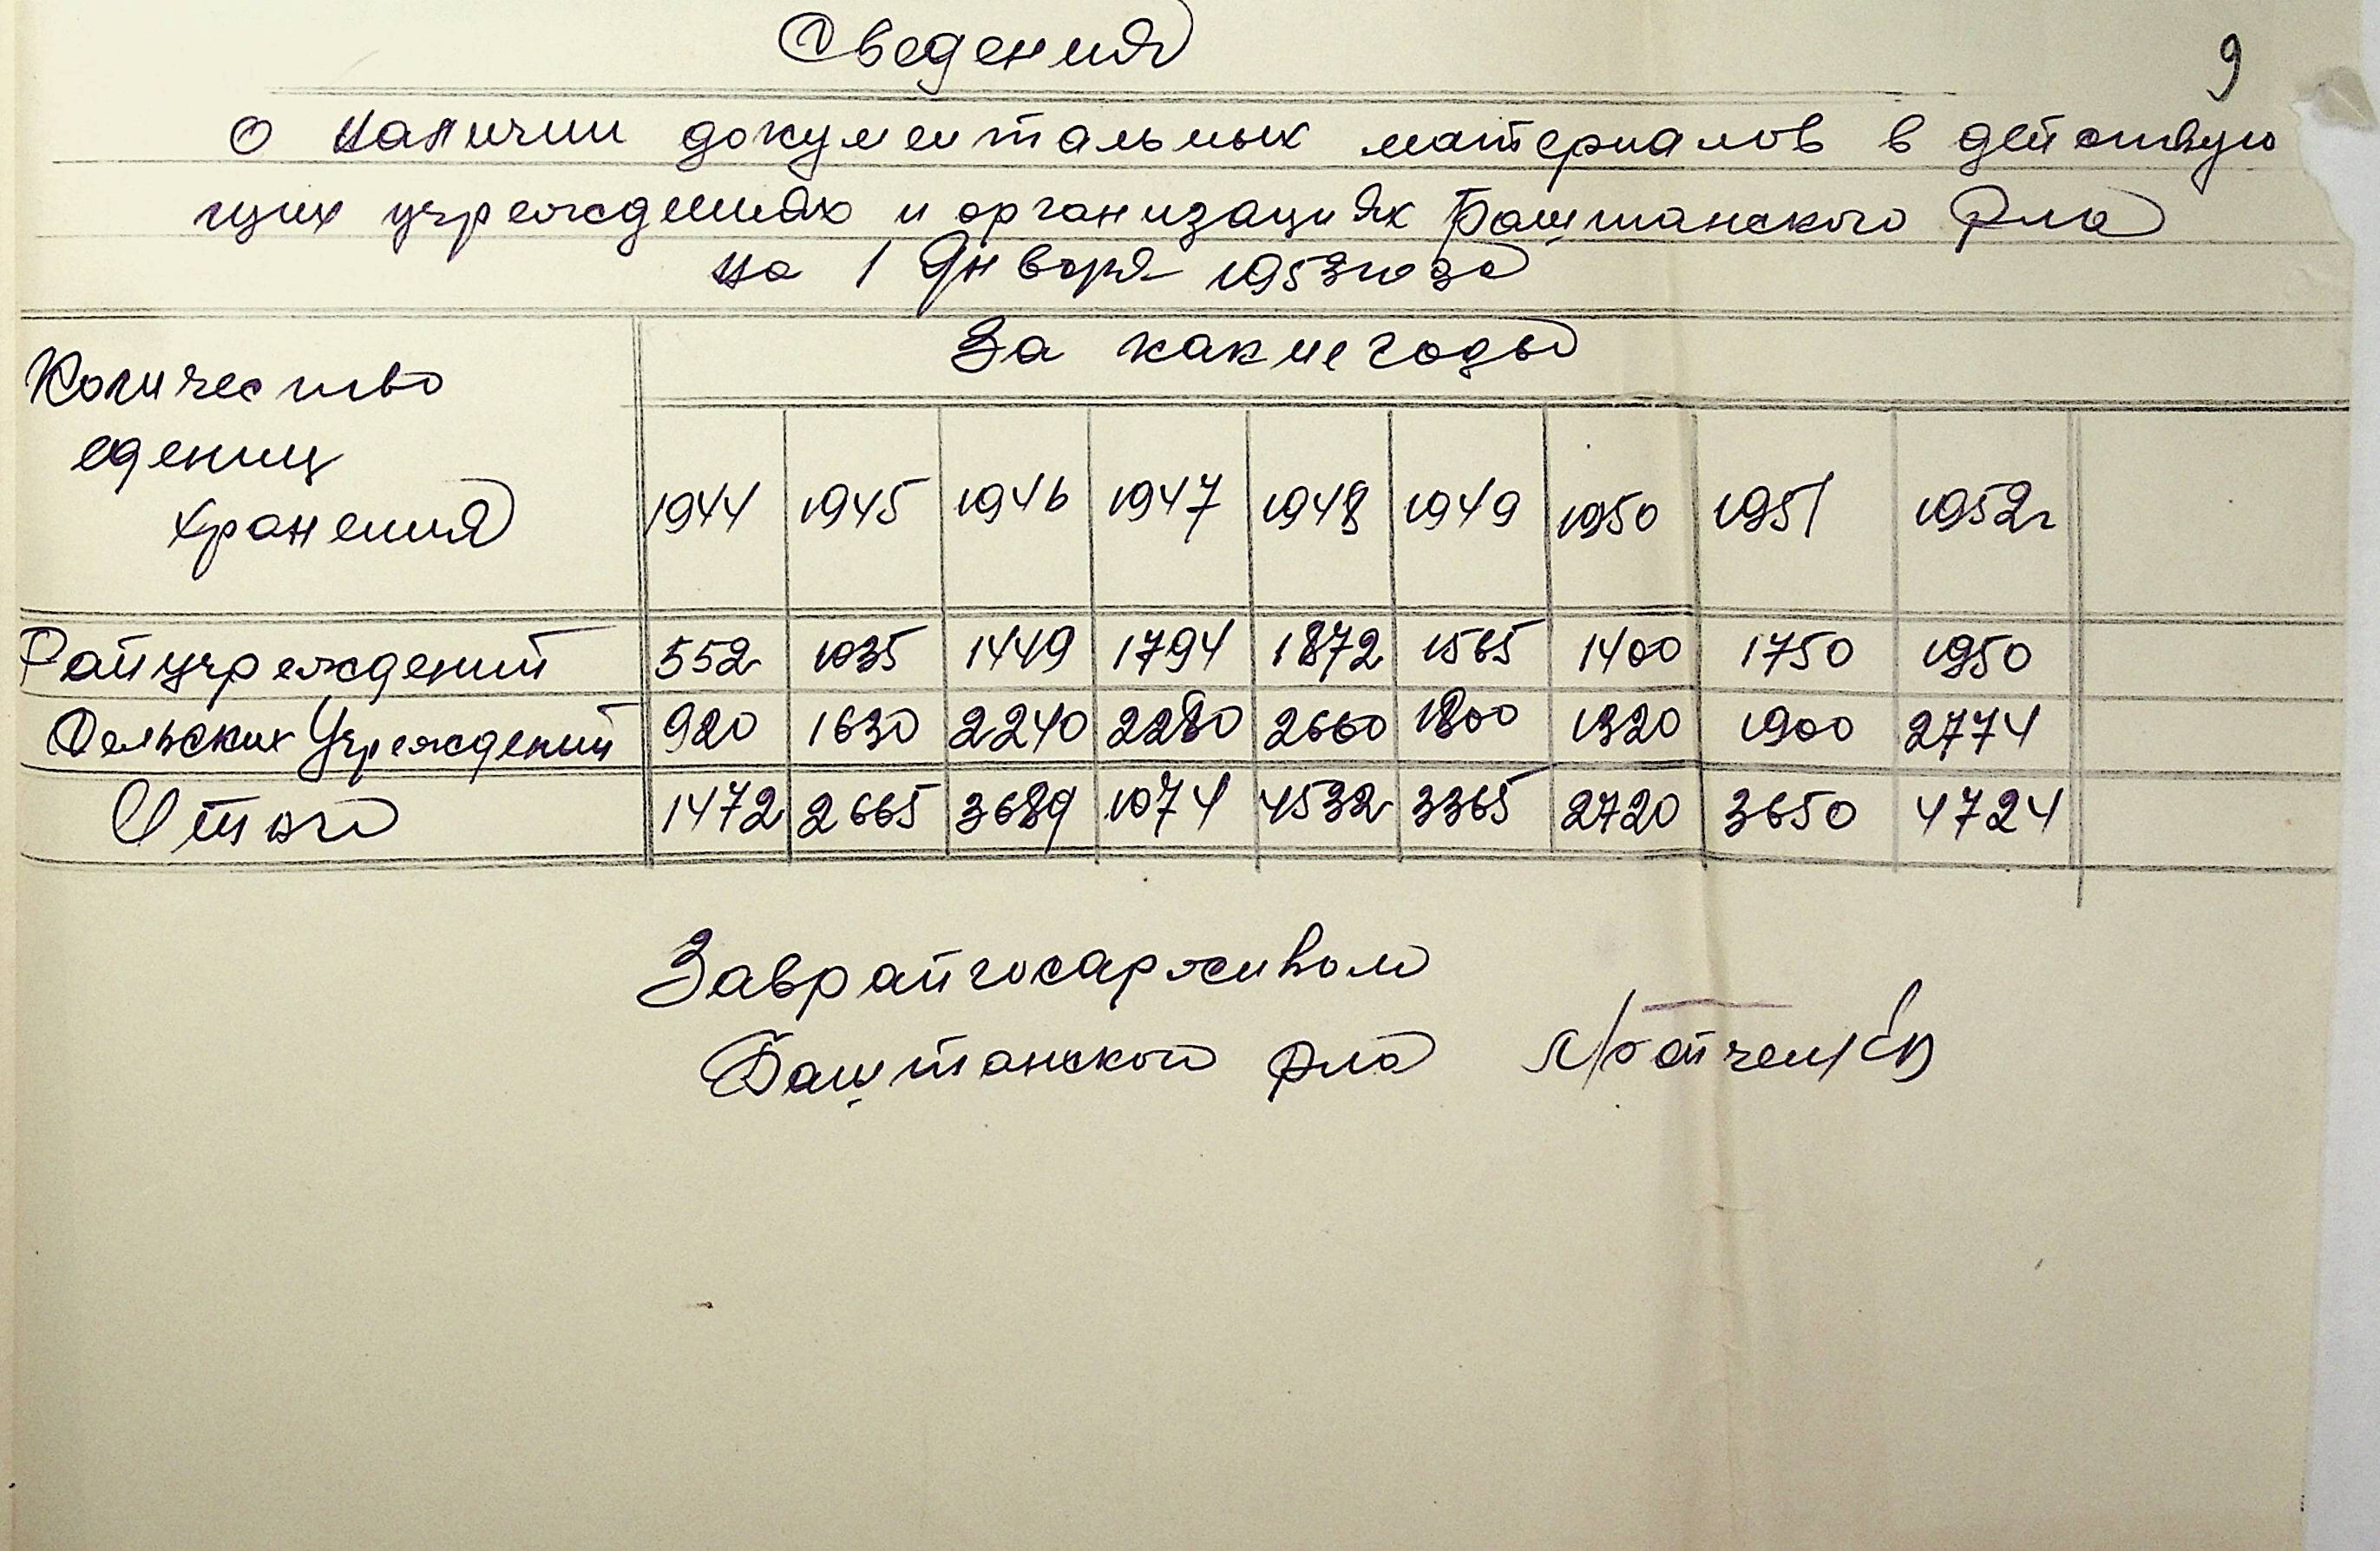 Сведения
9
о наличии документальных материалов в действую
щих учреждениях и организациях Баштанского р-на
на 1 Января 1953 года
Количество единиц хранения
За какие годы
1944 1945 1946 1947 1948 1949 1950 1951 1952г
Райучреждений 552 1035 1449 1794 1872 1565 1400 1750 1950
Сельских Учреждений 920 1630 2240 2280 2660 1800 1320 1900 2774
Итого 1472 2665 3689 1074 4532 3365 2720 3650 4724
Заврайгосархивом
Баштанского р-на